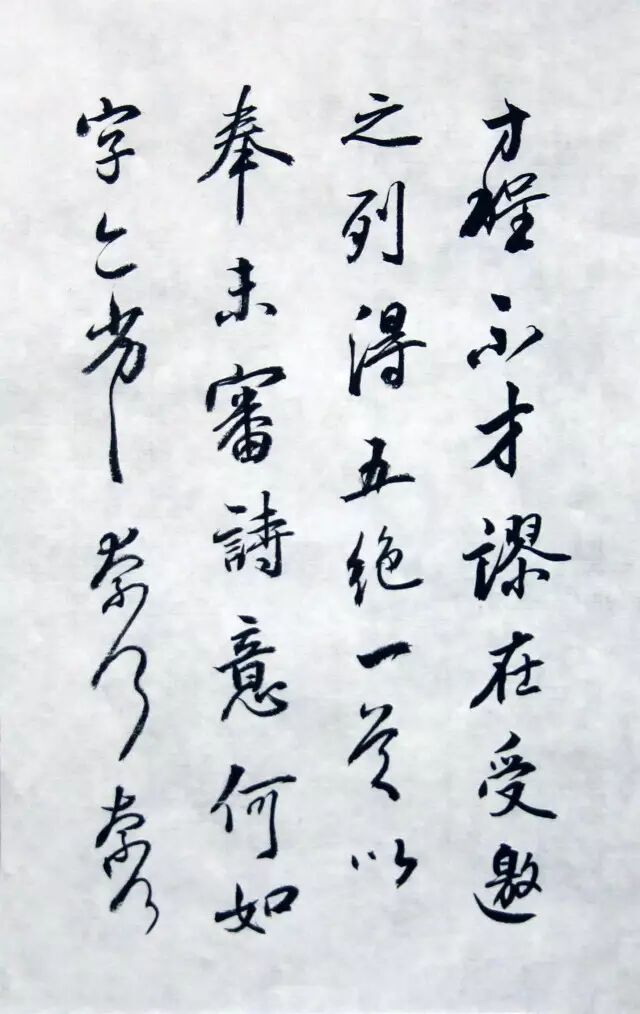 才程不才謬在受邀
之列得五絕一首以
奉未審詩意何如
字之劣